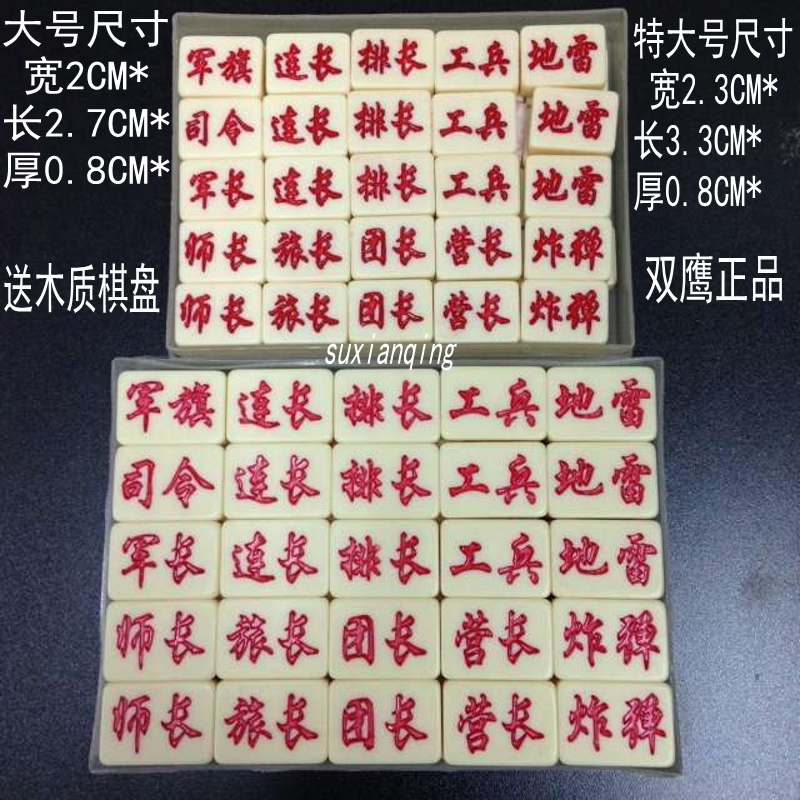 大号尺寸
宽2CM*
长2.7CM*
厚0.8CM*
送木质棋盘
特大号尺寸
宽2.3CM*
长3.3CM*
厚0.8CM*
双鹰正品
军旗 连长 排长 工兵 地雷
司令 连长 排长 工兵 地雷
军长 连长 排长 工兵 地雷
师长 旅长 团长 营长 炸弹
师长 旅长 团长 营长 炸弹
suxianqing
军旗 连长 排长 工兵 地雷
司令 连长 排长 工兵 地雷
军长 连长 排长 工兵 地雷
师长 旅长 团长 营长 炸弹
师长 旅长 团长 营长 炸弹